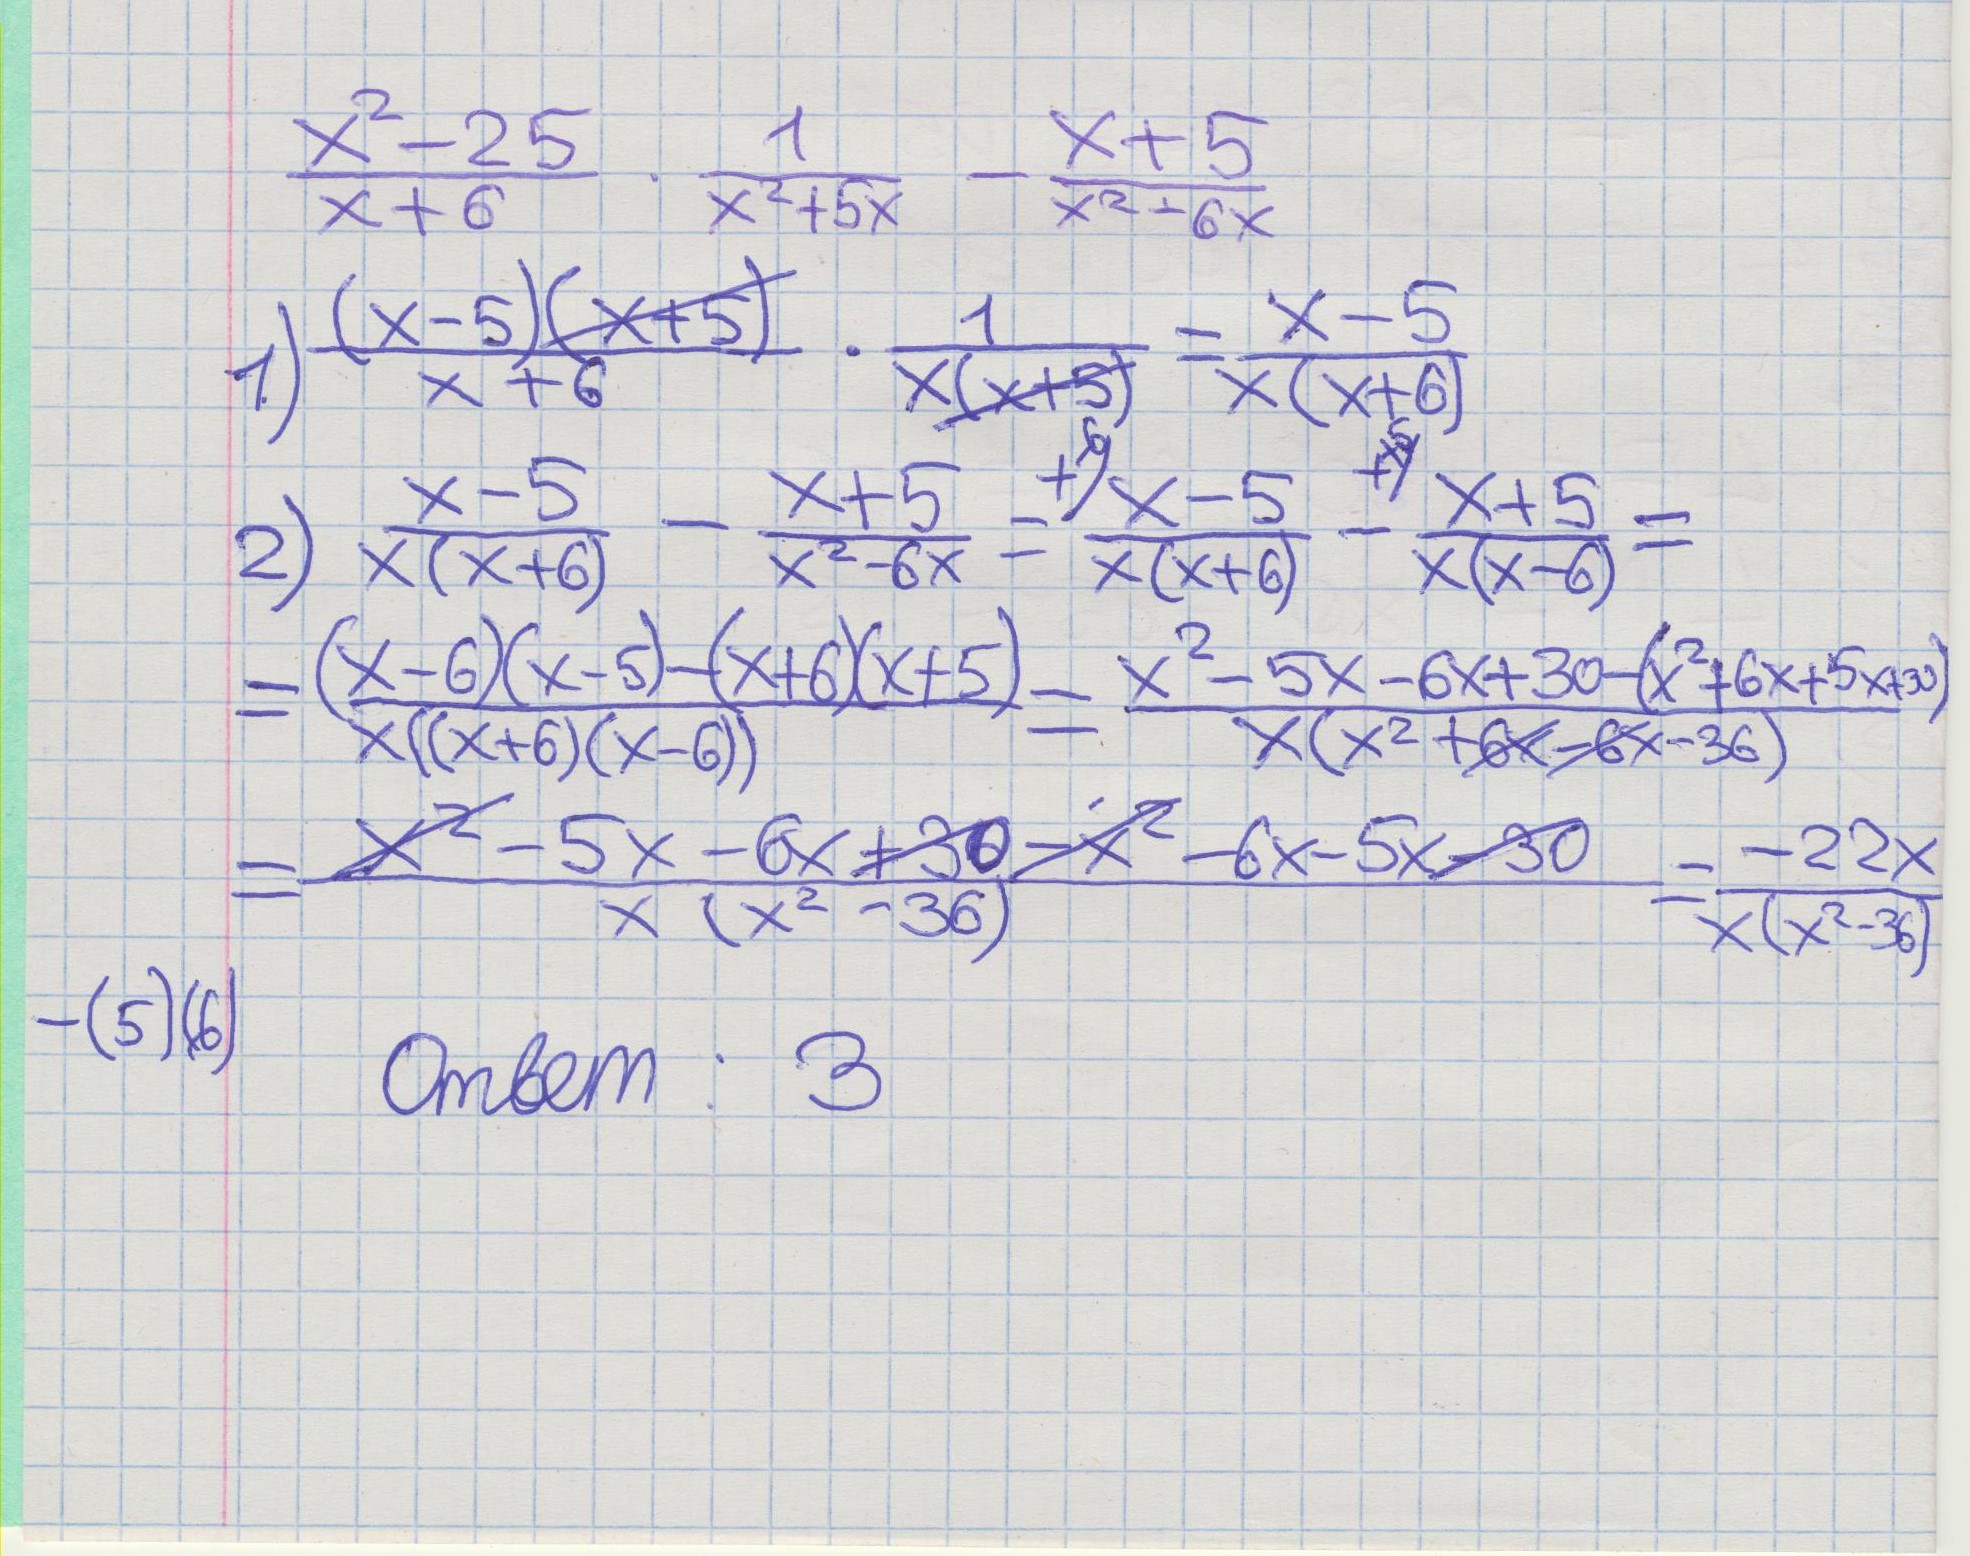 (x² - 25)/(x + 6) · 1/(x² + 5x) - (x + 5)/(x² - 6x)
1) (x - 5)(x + 5)/(x + 6) · 1/(x(x + 5)) = (x - 5)/(x(x + 6))
2) (x - 5)/(x(x + 6)) - (x + 5)/(x² - 6x) = (x - 5)/(x(x + 6)) - (x + 5)/(x(x - 6)) =
= ((x - 6)(x - 5) - (x + 6)(x + 5))/(x((x + 6)(x - 6))) = (x² - 5x - 6x + 30 - (x² + 6x + 5x + 30))/(x(x² + 6x - 6x - 36))
= (x² - 5x - 6x + 30 - x² - 6x - 5x - 30)/(x(x² - 36)) = (-22x)/(x(x² - 36))
-(5)(6)
Ответ : 3